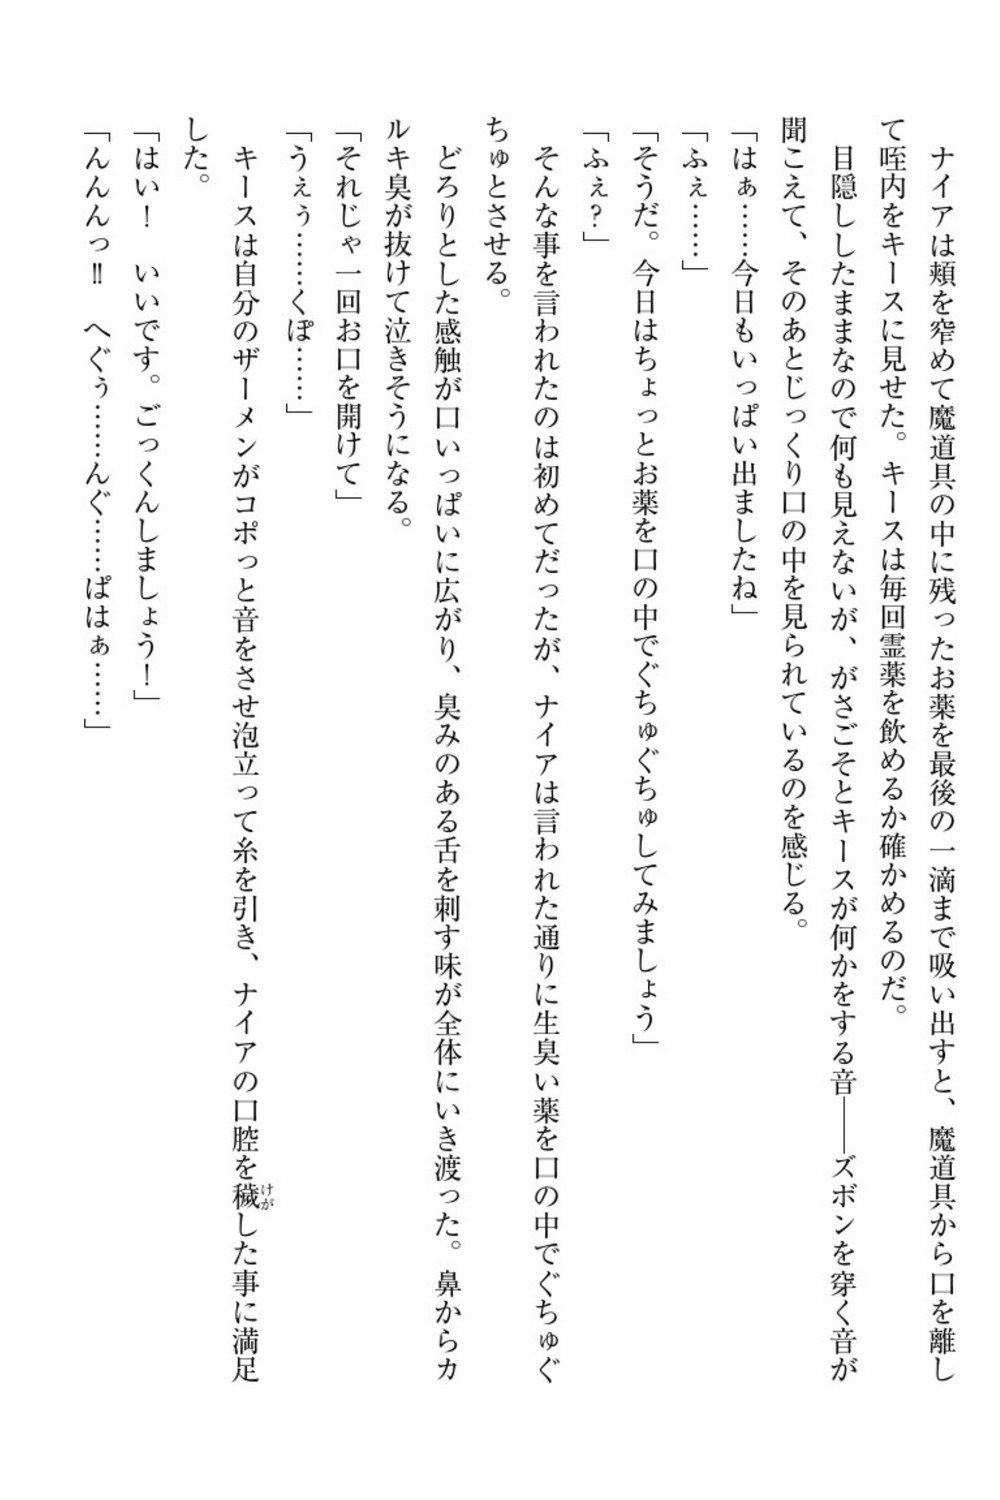 ナイアは頬を窄めて魔道具の中に残ったお薬を最後の一滴まで吸い出すと、魔道具から口を離し
て咥内をキースに見せた。キースは毎回霊薬を飲めるか確かめるのだ。
目隠ししたままなので何も見えないが、がさごそとキースが何かをする音――ズボンを穿く音が
聞こえて、そのあとじっくり口の中を見られているのを感じる。
「はぁ……今日もいっぱい出ましたね」
「ふぇ……」
「そうだ。今日はちょっとお薬を口の中でぐちゅぐちゅしてみましょう」
「ふぇ？」
そんな事を言われたのは初めてだったが、ナイアは言われた通りに生臭い薬を口の中でぐちゅぐ
ちゅとさせる。
どろりとした感触が口いっぱいに広がり、臭みのある舌を刺す味が全体にいき渡った。鼻からカ
ルキ臭が抜けて泣きそうになる。
「それじゃ一回お口を開けて」
「うぇぅ……くぽ……」
キースは自分のザーメンがコポっと音をさせ泡立って糸を引き、ナイアの口腔を穢けがした事に満足
した。
「はい！　いいです。ごっくんしましょう！」
「んんんっ‼　へぐぅ……んぐ……ぱはぁ……」